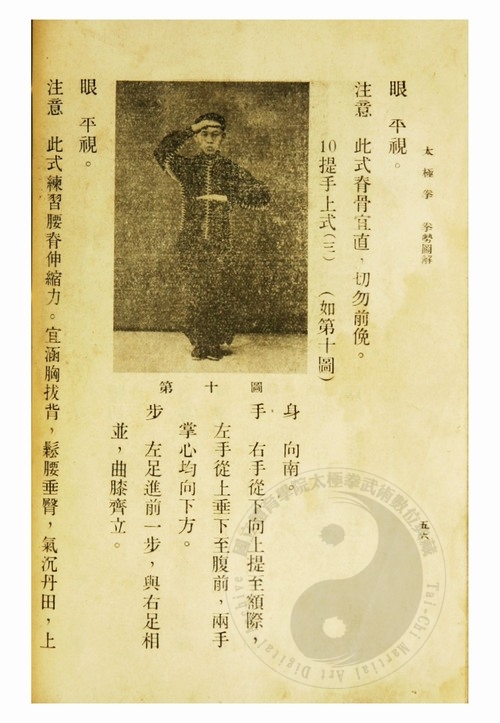 太極拳 拳勢圖解
眼 平視。
注意 此式脊骨宜直，切勿前俛。
10提手上式(三) (如第十圖)
第十圖
身 向南。
手 右手從下向上提至額際，
左手從上垂下至腹前，兩手
掌心均向下方。
步 左足進前一步，與右足相
並，曲膝齊立。
眼 平視。
注意 此式練習腰脊伸縮力。宜涵胸拔背，鬆腰垂臀，氣沉丹田，上
五六
太極拳武術數位典藏
Tai-Chi Martial Art Digital Archive